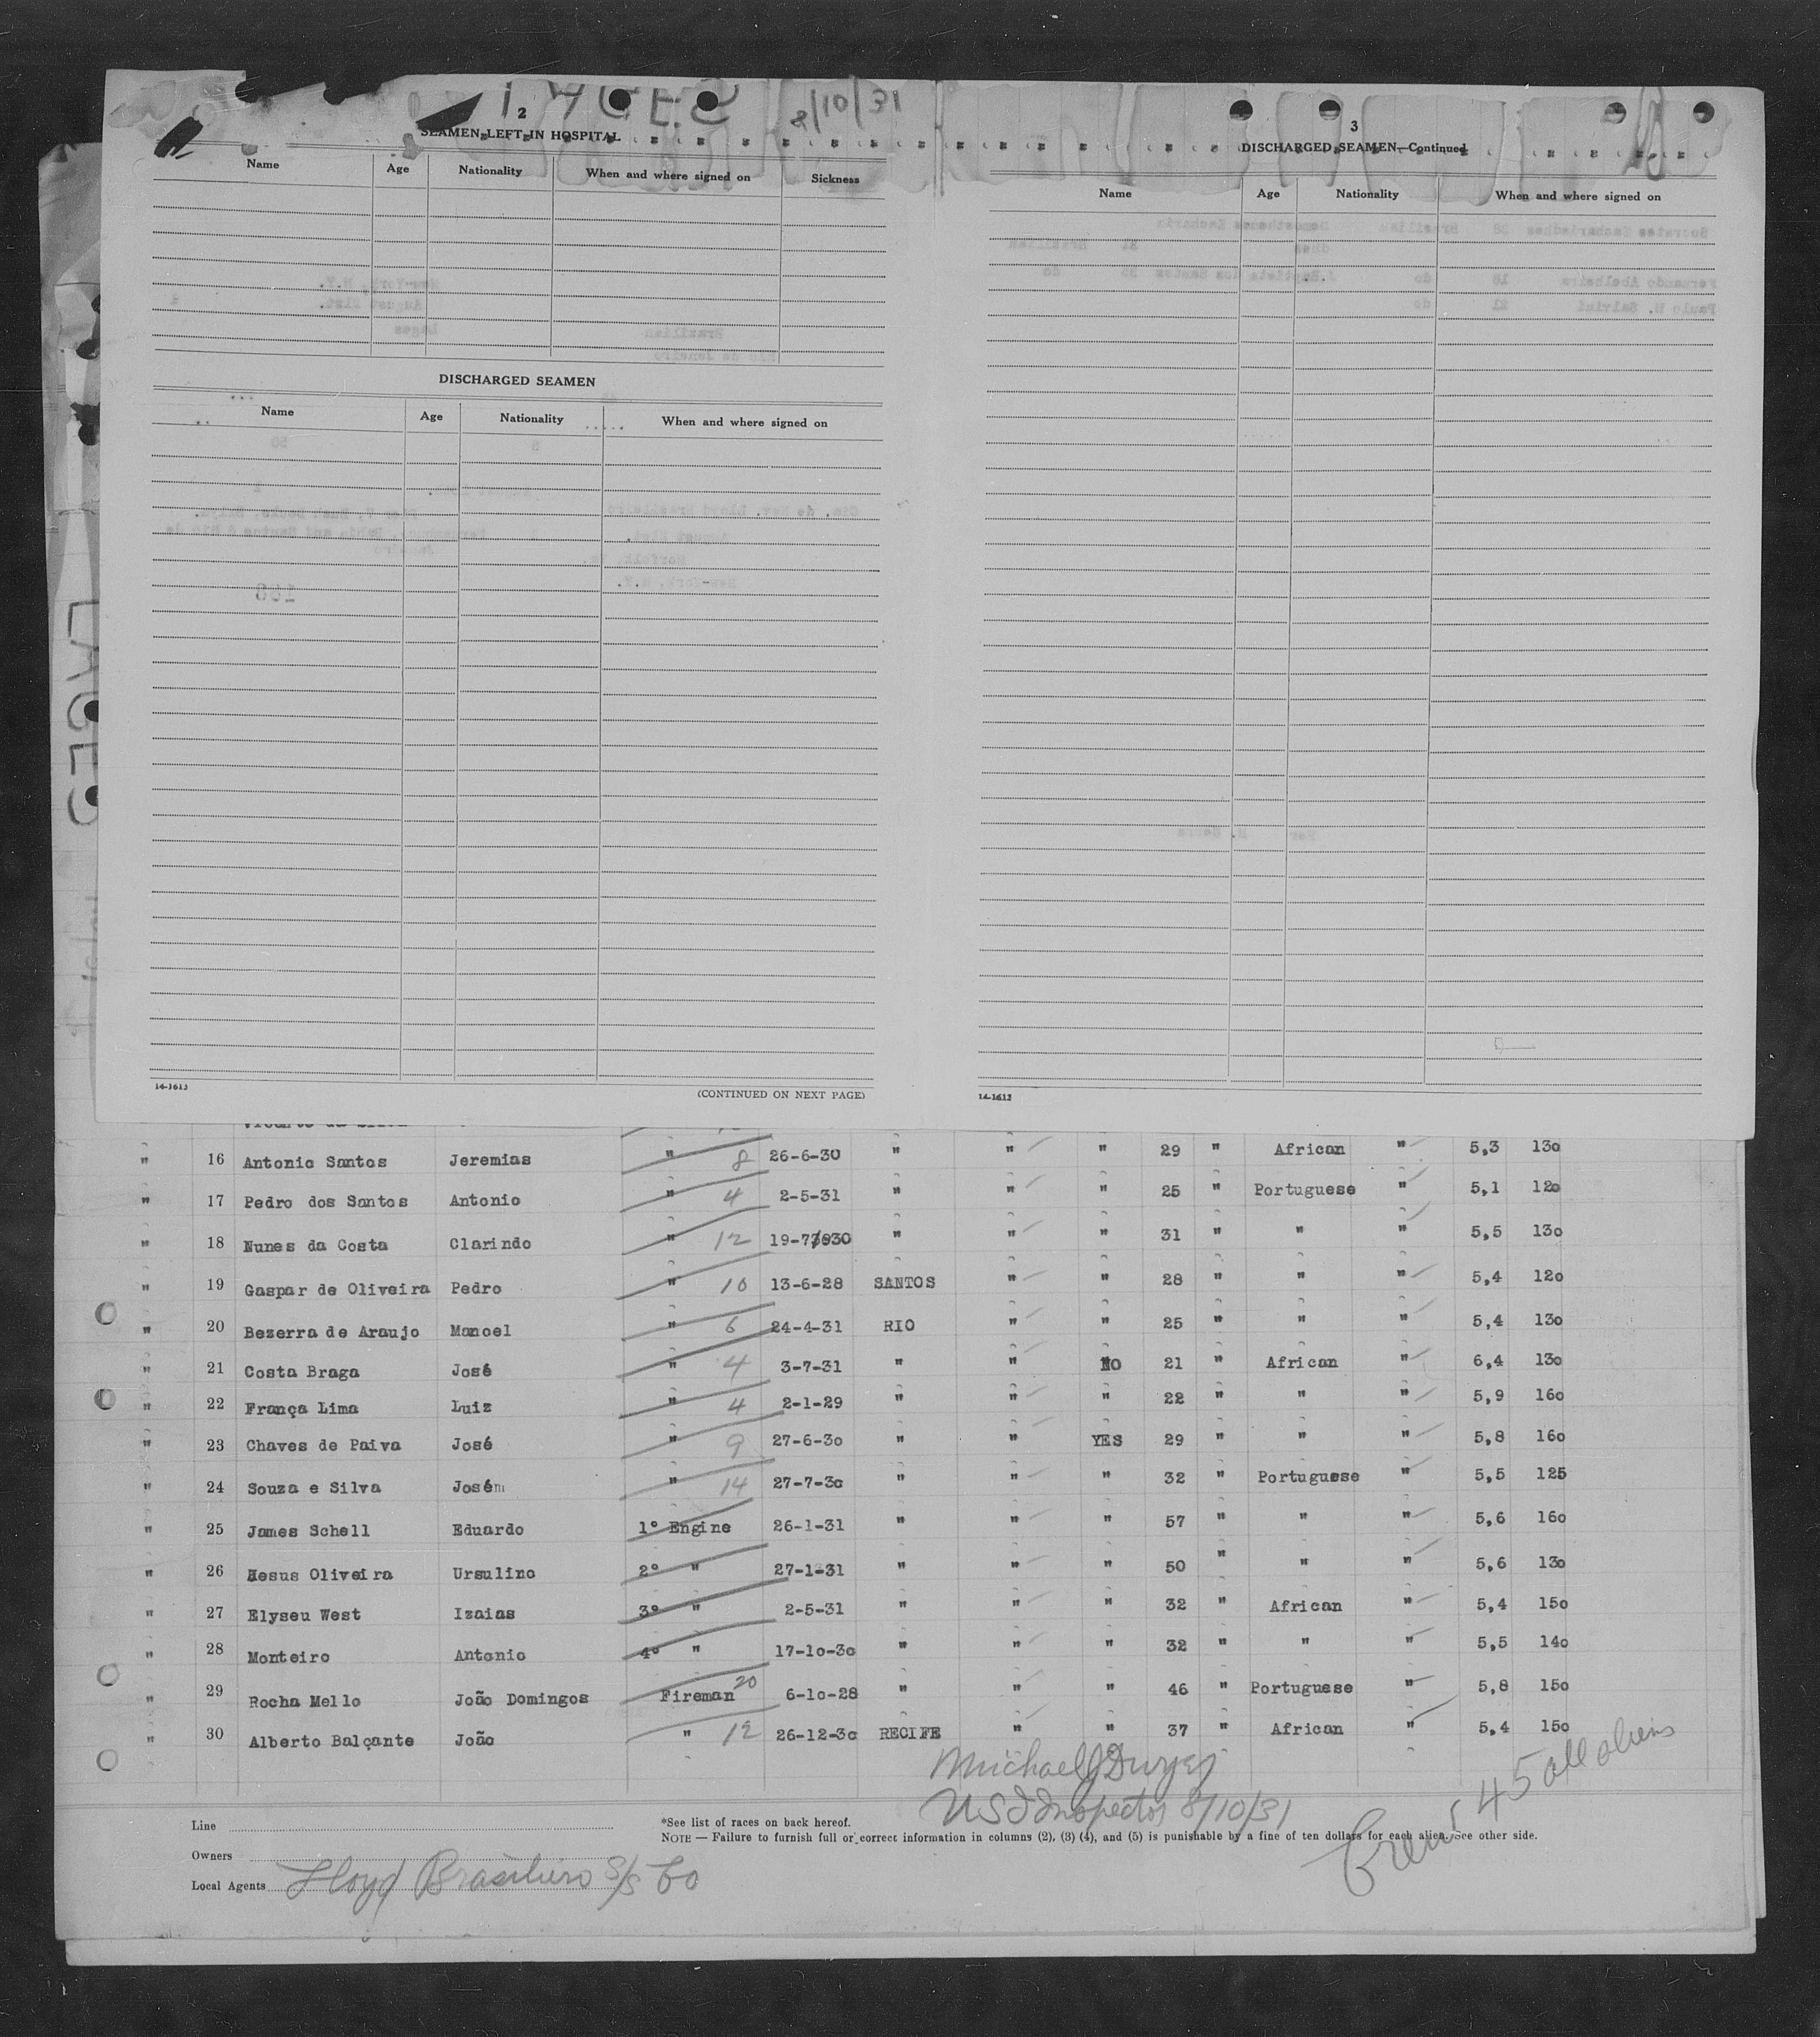 LAGES 8/10/31
2
SEAMEN LEFT IN HOSPITAL
Name Age Nationality When and where signed on Sickness
DISCHARGED SEAMEN
Name Age Nationality When and where signed on
14-1613
(CONTINUED ON NEXT PAGE)
3
DISCHARGED SEAMEN—Continued
Name Age Nationality When and where signed on
14-1613
LAGES
" 16 Antonio Santos Jeremias " 8 26-6-30 " " " 29 " African " 5,3 130
" 17 Pedro dos Santos Antonio " 4 2-5-31 " " " 25 " Portuguese " 5,1 120
" 18 Nunes da Costa Clarindo " 12 " " " 31 " " " 5,5 130
" 19 Gaspar de Oliveira Pedro " 10 13-6-28 SANTOS " " 28 " " " 5,4 120
" 20 Bezerra de Araujo Manoel " 6 24-4-31 RIO " " 25 " " " 5,4 130
" 21 Costa Braga José " 4 3-7-31 " " NO 21 " African " 6,4 130
" 22 França Lima Luiz " 4 2-1-29 " " " 22 " " " 5,9 160
" 23 Chaves de Paiva José " 9 27-6-30 " " YES 29 " " " 5,8 160
" 24 Souza e Silva José " 14 27-7-30 " " " 32 " Portuguese " 5,5 125
" 25 James Schell Eduardo 1º Engine 26-1-31 " " " 57 " " " 5,6 160
" 26 Jesus Oliveira Ursulino 2º " 27-1-31 " " " 50 " " " 5,6 130
" 27 Elyseu West Izaias 3º " 2-5-31 " " " 32 " African " 5,4 150
" 28 Monteiro Antonio 4º " 17-10-30 " " " 32 " " " 5,5 140
" 29 Rocha Mello João Domingos Fireman 20 6-10-28 " " " 46 " Portuguese " 5,8 150
" 30 Alberto Balçante João " 12 26-12-30 RECIFE " " 37 " African " 5,4 150
Michael J Dwyer
US Inspector 8/10/31
Crew 45 all aliens
Line
*See list of races on back hereof.
NOTE — Failure to furnish full or correct information in columns (2), (3) (4), and (5) is punishable by a fine of ten dollars for each alien. See other side.
Owners
Local Agents Lloyd Brasileiro S/S Co